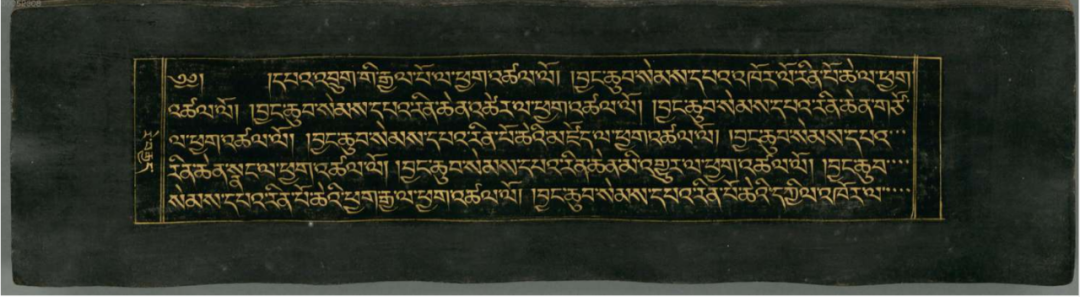 ༄༅། །དཔའ་འབྲུག་གི་རྒྱལ་པོ་ལ་ཕྱག་འཚལ་ལོ། །བྱང་ཆུབ་སེམས་དཔའ་འཁོར་ལོ་རིན་པོ་ཆེ་ལ་ཕྱག་
འཚལ་ལོ། །བྱང་ཆུབ་སེམས་དཔའ་རིན་ཆེན་འཚེར་ལ་ཕྱག་འཚལ་ལོ། །བྱང་ཆུབ་སེམས་དཔའ་རིན་ཆེན་གཙོ་
ལ་ཕྱག་འཚལ་ལོ། །བྱང་ཆུབ་སེམས་དཔའ་རིན་པོ་ཆེའི་མདོང་ལ་ཕྱག་འཚལ་ལོ། །བྱང་ཆུབ་སེམས་དཔའ་
རིན་ཆེན་སྣང་ལ་ཕྱག་འཚལ་ལོ། །བྱང་ཆུབ་སེམས་དཔའ་རིན་ཆེན་མི་འགྱུར་ལ་ཕྱག་འཚལ་ལོ། །བྱང་ཆུབ་
སེམས་དཔའ་རིན་པོ་ཆེའི་ཕྱག་རྒྱ་ལ་ཕྱག་འཚལ་ལོ། །བྱང་ཆུབ་སེམས་དཔའ་རིན་པོ་ཆེའི་དཀྱིལ་འཁོར་ལ་